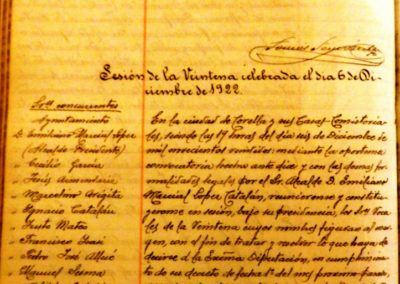 Sesión de la Veintena celebrada el dia 6 de Di-
ciembre de 1922.
Sres. concurrentes
Ayuntamiento
D. Emiliano Marcial Lopez
(Alcalde Presidente)
" Cecilio Garcia
" Luis
" Marcelino Angita
" Ignacio Catalán
" Justo Matea
" Francisco
" Pedro José Allué
" Manuel Sesma
En la ciudad de Corella y sus Casas Consistoria
les, siendo las 17 horas del dia seis de Diciembre
de mil novecientos veintidos: mediante la oportuna
convocatoria hecha ante diem y con las demas for
malidades legales por el Sr. Alcalde D. Emiliano
Marcial Lopez Catalán, reunieronse y constitu-
yeronse en sesión, bajo su presidencia, los Sres. Voca
les de la Veintena cuyos nombres figuran al mar-
gen, con el fin de tratar y resolver lo que haya de
decirse á la Excma. Diputación, en cumplimien
to de su decreto de fecha 1º del mes proximo pasado,